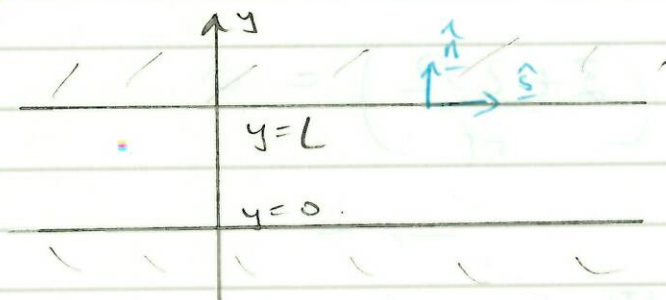 y
n̂
ŝ
y=L
y=0.